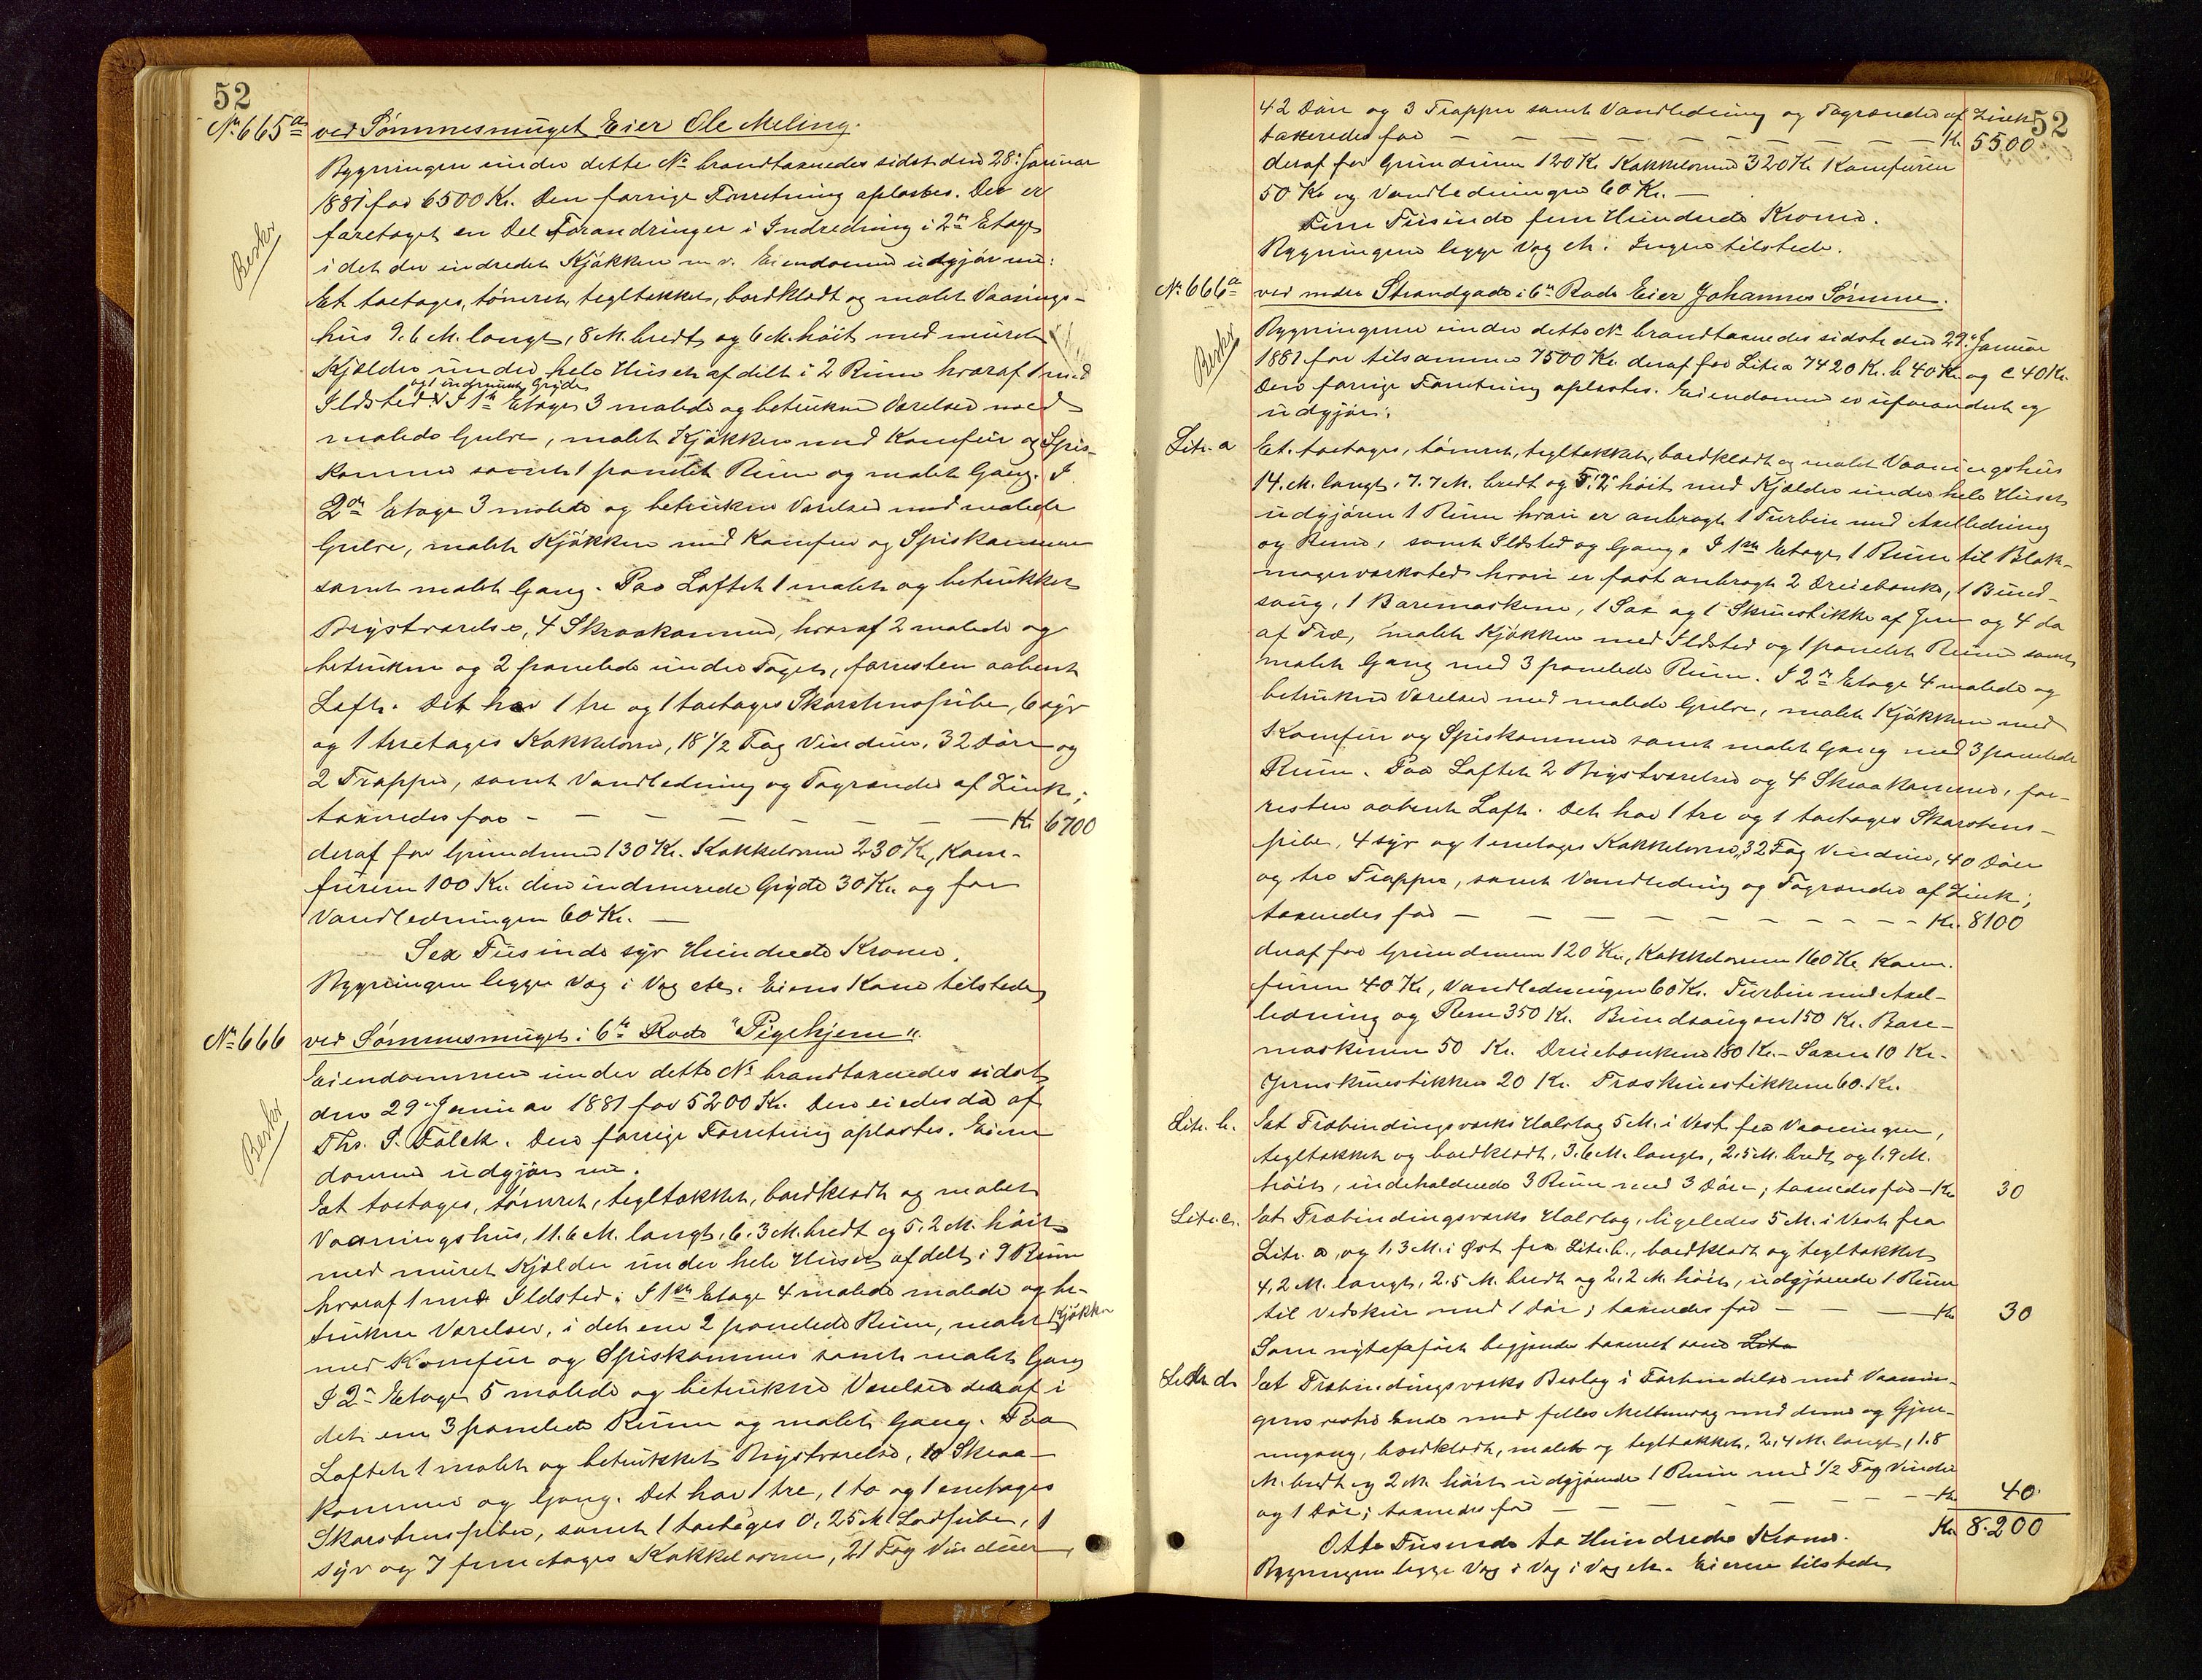 52
No 665a ved Sømmesmuget Eier Ole Meling.
Bygningen under dette No brandtaxeredes sidst den 28. Januar
1881 for 6500 Kr. Den forrige Forretning oplæstes. Der er
foretaget en Del Forandringer i Indredning i 2den Etage
i det der indredet Kjøkken m. v. Eiendommen udgjør nu:
Besker
Et toetages, tømret, tegltækket, bordklædt og malet Vaanings-
hus 9.6 M. langt, 8 M. bredt og 6 M. høit med muret
Kjælder under hele Huset afdelt i 2 Rum hvoraf 1 med
og 1 indmuret Gryde
Ildsted. I 1ste Etage 3 malede og betrukne Værelser med
malede Gulve, malet Kjøkken med Komfur og Spis-
kammer samt 1 panelet Rum og malet Gang. I
2den Etage 3 malede og betrukne Værelser med malede
Gulve, malet Kjøkken med Komfur og Spiskammer
samt malet Gang. Paa Loftet 1 malet og betrukket
Brystværelse, 4 Skraakammer, hvoraf 2 malede og
betrukne og 2 panelede under Taget, forresten aabent
Loft. Det har 1 tre og 1 toetages Skorstenspibe, 6 syv
og 1 treetages Kakkelovne, 18 1/2 Fag Vinduer, 32 Døre og
2 Trapper, samt Vandledning og Tagrender af Zink;
taxeredes for - - - - - - - Kr 6700
deraf for Grundmur 130 Kr. Kakkelovne 230 Kr, Kom-
furene 100 Kr. den indmurede Gryde 30 Kr. og for
Vandledningen 60 Kr. —
Sex Tusinde syv Hundrede Kroner.
Bygningen ligger Væg i Væg etc. Eierens Kone tilstede
No 666 ved Sømmesmuget i 6te Rode "Pigehjem".
Eiendommen under dette No brandtaxeredes sidst
den 29. Januar 1881 for 5200 Kr. Den eiedes da af
Besker
Ths. S. Falck. Den forrige Forretning oplæstes. Eien-
dommen udgjør nu.
Et toetages, tømret, tegltækket, bordklædt og malet
Vaaningshus, 11.6 M. langt, 6.3 M. bredt og 5.2 M. høit
med muret Kjælder under hele Huset afdelt i 9 Rum
hvoraf 1 med Ildsted. I 1ste Etage 4 malede malede og be-
trukne Værelser, i det ene 2 panelede Rum, malet Kjøkken
med Komfur og Spiskammer samt malet Gang
I 2den Etage 5 malede og betrukne Værelser deraf i
det ene 3 panelede Rum og malet Gang. Paa
Loftet 1 malet og betrukket Brystværelse, 10 Skraa-
kammer og Gang. Det har 1 tre, 1 to og 1 enetages
Skorstenspiber, samt 1 toetages 0,25 M Lodpibe, 1
syv og 7 femetages Kakkelovne, 21 Fag Vinduer
52
42 Døre og 3 Trapper samt Vandledning og Tagrender af Zink
taxeredes for — — — — — — Kr 5500
deraf for Grundmur 120 Kr. Kakkelovne 320 Kr Komfuren
50 Kr og Vandledningen 60 Kr. —
Fem Tusinde fem Hundrede Kroner.
Bygningen ligge Væg etc. Ingen tilstede.
No 666a ved nedre Strandgade i 6te Rode Eier Johannes Sømme.
Besker
Bygningerne under dette No brandtaxeredes sidst den 29. Januar
1881 for tilsammen 7500 Kr. deraf for Litr a 7420 Kr. b 40 Kr og c 40 Kr.
Den forrige Forretning oplæstes. Eiendommen er uforandret og
udgjør:
Litr. a Et toetages, tømret, tegltækket, bordklædt og malet Vaaningshus
14 M. langt, 7.7 M. bredt og 5.2 høit med Kjælder under hele Huset
udgjøren 1 Rum hvori er anbragt 1 Turbin med Axelledning
og Rem, samt Ildsted og Gang. I 1ste Etage 1 Rum til Blok-
magerværksted hvori er fast anbragt 2 Dreiebænke, 1 Baand-
saug, 1 Boremaskine, 1 Sax og 1 Skruestikke af Jern og 4 do
af Træ, malet Kjøkken med Ildsted og 1 panelet Rum samt
malet Gang med 3 panelede Rum. I 2den Etage 4 malede og
betrukne Værelser med malede Gulve, malet Kjøkken med
Komfur og Spiskammer samt malet Gang med 3 panelede
Rum. Paa Loftet 2 Brystværelser og 4 Skraakammer, for-
resten aabent Loft. Det har 1 tre og 1 toetages Skorstens-
piber, 4 syv og 1 enetages Kakkelovne, 32 Fag Vinduer, 40 Døre
og tre Trapper, samt Vandledning og Tagrender af Zink;
taxeredes for — — — — — — — Kr. 8100
deraf for Grundmuren 120 Kr., Kakkelovnene 160 Kr. Kom-
furen 40 Kr, Vandledningen 60 Kr. Turbin med Axel-
ledning og Rem 350 Kr. Baandsaugen 150 Kr. Bore-
maskinen 50 Kr. Dreiebænkene 180 Kr. - Saxen 10 Kr.
Jernskruestikken 20 Kr. Træskruestikkene 60 Kr.
Litr. b. Et Træbindingsværks Halvtag 5 M. i Vest fra Vaaningen,
tegltækket og bordklædt, 3.6 M. langt, 2,5 M. bredt og 1.9 M.
høit, indeholdende 3 Rum med 3 Døre; taxeredes for - Kr 30
Litr. c. Et Træbindingsværks Halvtag, ligeledes 5 M. i Vest fra
Litr. a, og 1,3 M. i Øst fra Litr. b., bordklædt og tegltækket
4,2 M. langt, 2.5 M. bredt og 2,2 M. høit, udgjørende 1 Rum
til Vedskur med 1 Dør; taxeredes for — — — Kr 30
Som nytopført begjæredes taxeret som Litr
Litr d. Et Træbindingsværks Bislag i Forbindelse med Vaanin-
gens vestre Ende med fælles Mellemvæg med denne og Gjen-
nemgang, bordklædt, malet og tegltækket, 2,4 M. langt, 1.8
M. bredt og 2 M. høit udgjørende 1 Rum med 1/2 Fag Vindue
og 1 Dør; taxeredes for — — — — — — Kr 40.
Kr 8.200
Otte Tusinde to Hundrede Kroner.
Bygningen ligge Væg i Væg i Væg etc. Eieren tilstede